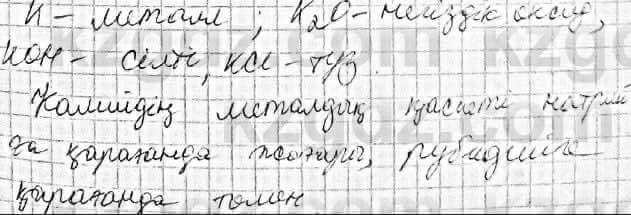 К - металл ; K₂O - негіздік оксид,
КОН - сілті, KCl - тұз.
Калийдің металдық қасиеті натрий
ға қарағанда жоғары, рубидийге
қарағанда төмен